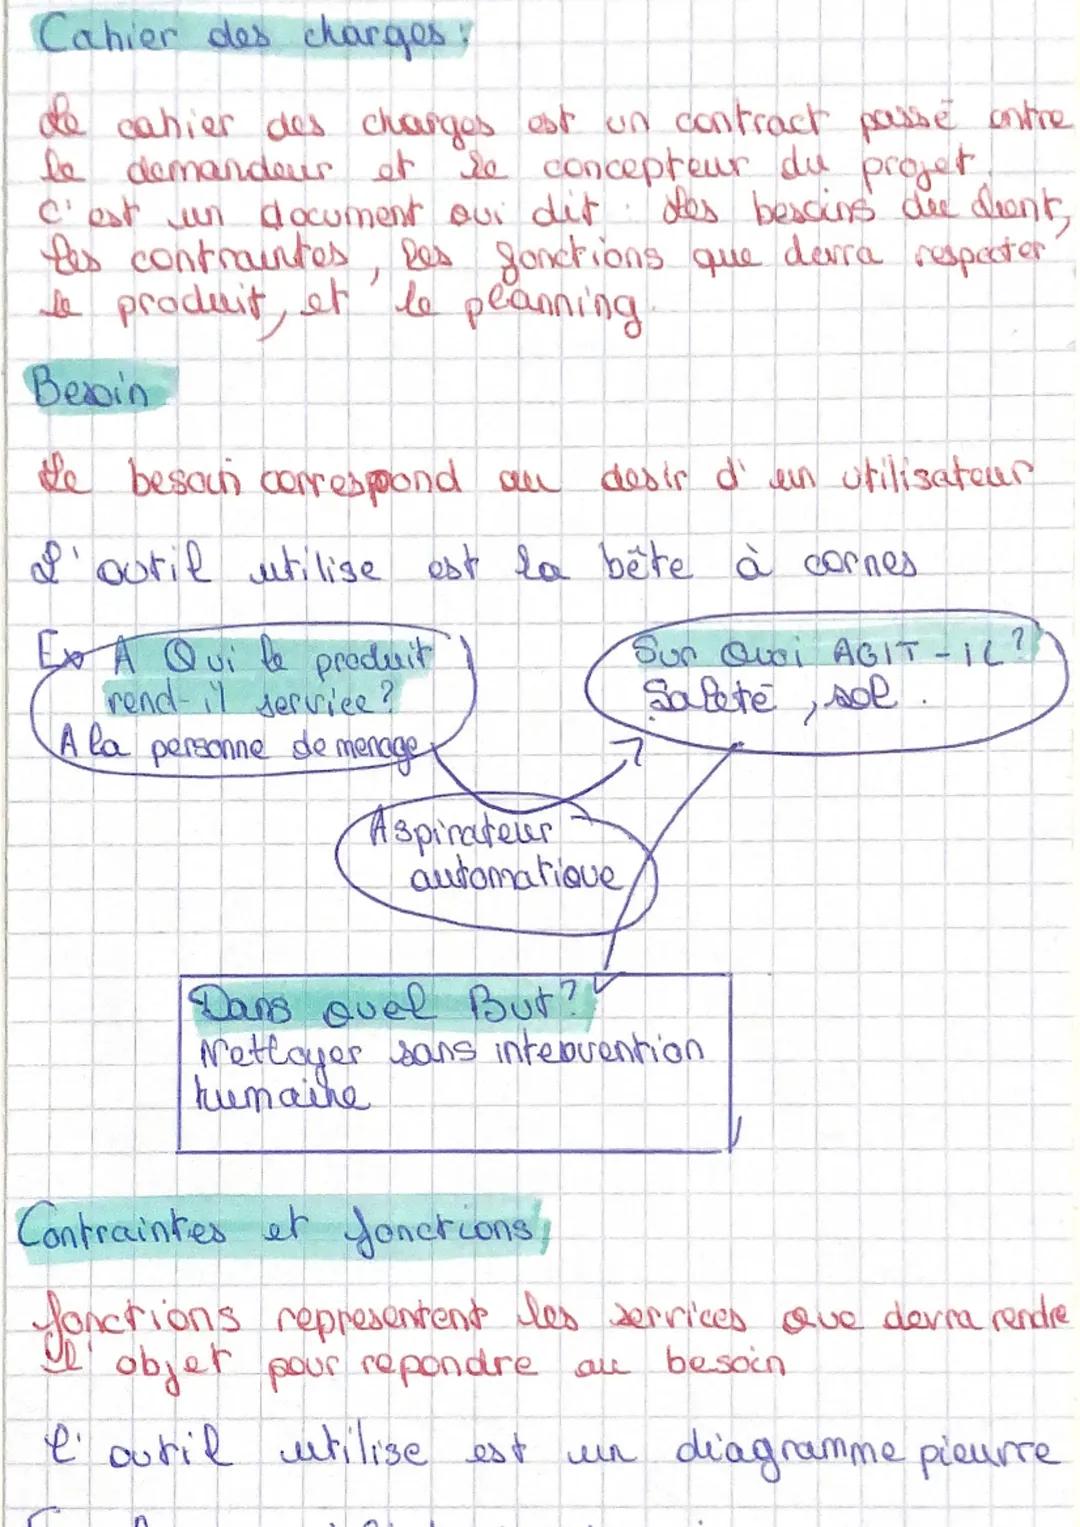 Cahier des charges :
Le cahier des charges est un contract passé entre
le demandeur et le concepteur du projet.
C'est un document qui dit : les besoins du client,
les contraintes, les fonctions que devra respecter
le produit, et le planning.
Besoin
Le besoin correspond au desir d'un utilisateur
L'outil utilise est la bête à cornes
Ex A Qui le produit
rend-il service ?
A la personne de menage
Sur Quoi AGIT-IL ?
Saleté, sol.
Aspirateur
automatique
Dans quel But ?
Nettoyer sans intervention
humaine
Contraintes et fonctions
fonctions representent les services que devra rendre
l'objet pour repondre au besoin
l'outil utilise est un diagramme pieuvre